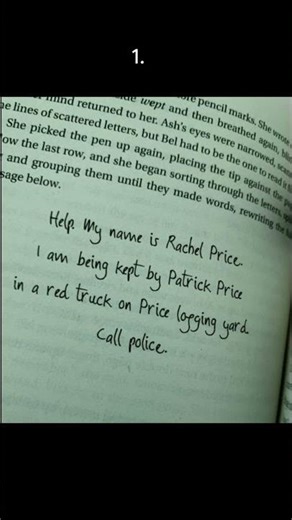 1.
pencil marks. She wrote
wept and then breathed again,
mind returned to her. Ash's eyes were narrowed,
lines of scattered letters, but Bel had to be the one to read it
She picked the pen up again, placing the tip against the
the last row, and she began sorting through the letters,
and grouping them until they made words, rewriting the
sage below.
Help. My name is Rachel Price.
I am being kept by Patrick Price
in a red truck on Price logging yard.
Call police.